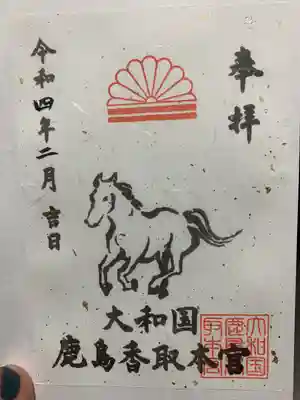 奉拝
令和四年二月吉日
大和国
鹿島香取本宮
大和国
鹿島香
取本宮